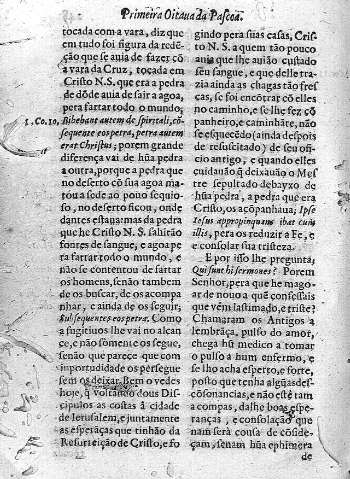 Primeira Oitaua da Pascoa.
tocada com a vara, diz que
em tudo foi figura da redẽ-
ção que se auia de fazer cõ
a vara da Cruz, tocada em
Cristo N. S. que era a pedra
de dõde auia de sair a agoa,
pera fartar todo o mundo,
1. Co. 10. Bibebant autem de spiritali, cõ-
sequente eos petra, petra autem
erat Christus; porem grande
diferença vai de hũa pedra
a outra, porque a pedra que
no deserto cõ sua agoa ma-
tou a sede ao pouo sequio-
so, no deserto ficou, onde
dantes estaua: mas da pedra
que he Cristo N. S. sahirão
fontes de sangue, e agoa pe
ra fartar todo o mundo, e
não se contentou de fartar
os homens, senão tambem
de os buscar, de os acompa
nhar, e ainda de os seguir,
subsequentes eos petra. Como
a fugitiuos lhe vai no alcan
ce, e não somente os segue,
senão que parece que com
inportudidade os persegue
sem os deixar. Bem o vedes
hoje, q̃ voltando dous Dis-
cipulos as costas á cidade
de Ierusalem, e juntamente
as esperãças que tinhão da
Resurreição de Cristo, e fo
gindo pera suas casas, Cris-
to N. S. a quem tão pouco
auia que lhe auião custado
seu sangue, e que delle tra-
zia ainda as chagas tão fres
cas, se foi encõtrar cõ elles
no caminho, e se lhe fez cõ
panheiro, e caminhãte, não
se esquecẽdo (ainda despois
de resuscitado) de seu ofi-
cio antigo, e quando elles
cuidauão q̃ deixauão o Mes
tre sepultado debayxo de
hũa pedra, a pedra que era
Cristo, os acõpanhaua, Ipse
Iesus appropinquans ibat cum
illis, pera os reduzir a Fe, e
e consolar sua tristeza.
E por isso lhe pregunta,
Qui sunt hi sermones? Porem
Senhor, pera que he magoar
de nouo a quẽ confessais
que vem lastimado, e triste?
Chamaram os Antigos a
lembrãça, pulso do amor,
chega hũ medico a tomar
o pulso a hum enfermo, e
se lho acha esperto, e forte,
posto que tenha algũas des-
cõsonancias, e não estê tam
a compas, dalhe boas espe-
ranças, e consolação que
nam será cousa de cõside-
çam, senam hũa ephimera
de